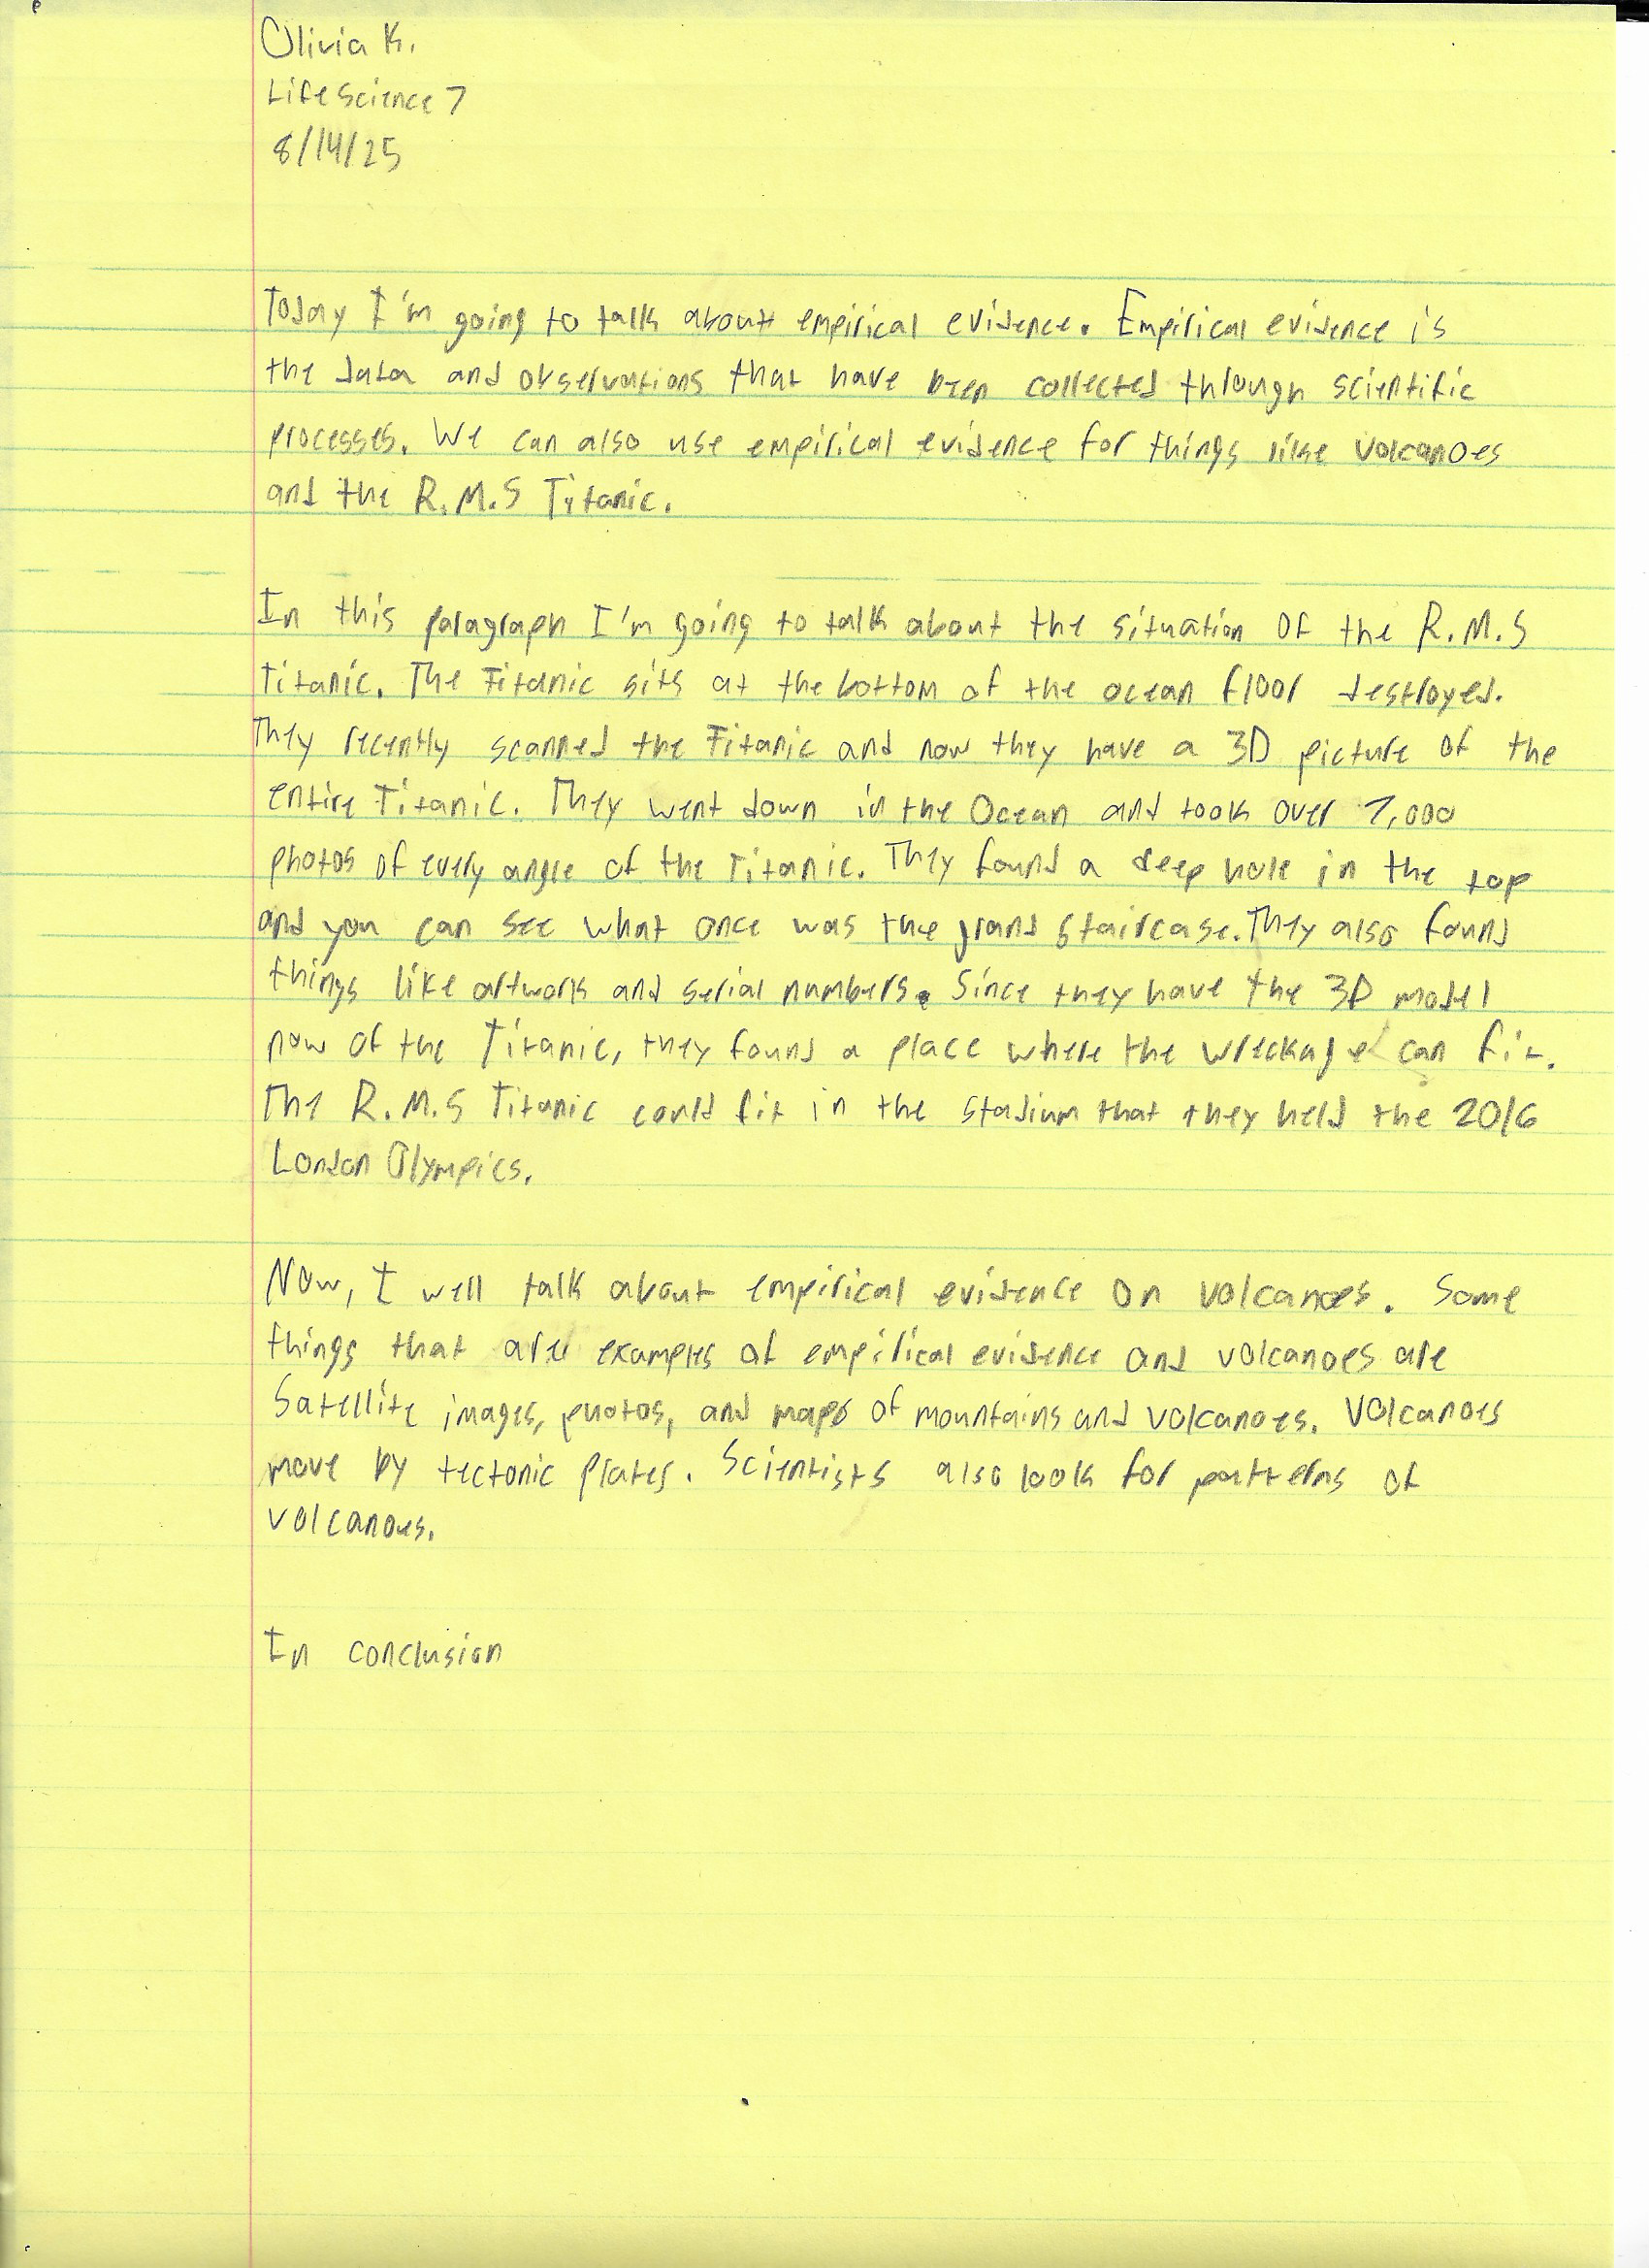 Olivia K.
Life Science 7
8/14/25
Today I'm going to talk about empirical evidence. Empirical evidence is
the data and observations that have been collected through scientific
processes. We can also use empirical evidence for things like volcanoes
and the R.M.S Titanic.
In this paragraph I'm going to talk about the situation of the R.M.S
Titanic. The Titanic sits at the bottom of the ocean floor destroyed.
They recently scanned the Titanic and now they have a 3D picture of the
entire Titanic. They went down in the Ocean and took over 7,000
photos of every angle of the Titanic. They found a deep hole in the top
and you can see what once was the grand staircase. They also found
things like artwork and serial numbers. Since they have the 3D model
now of the Titanic, they found a place where the wreckage can fit.
The R.M.S Titanic could fit in the stadium that they held the 2016
London Olympics.
Now, I well talk about empirical evidence on volcanoes. Some
things that are examples of empirical evidence and volcanoes are
Satellite images, photos, and maps of mountains and volcanoes. Volcanoes
move by tectonic plates. Scientists also look for patterns of
volcanoes.
In conclusion